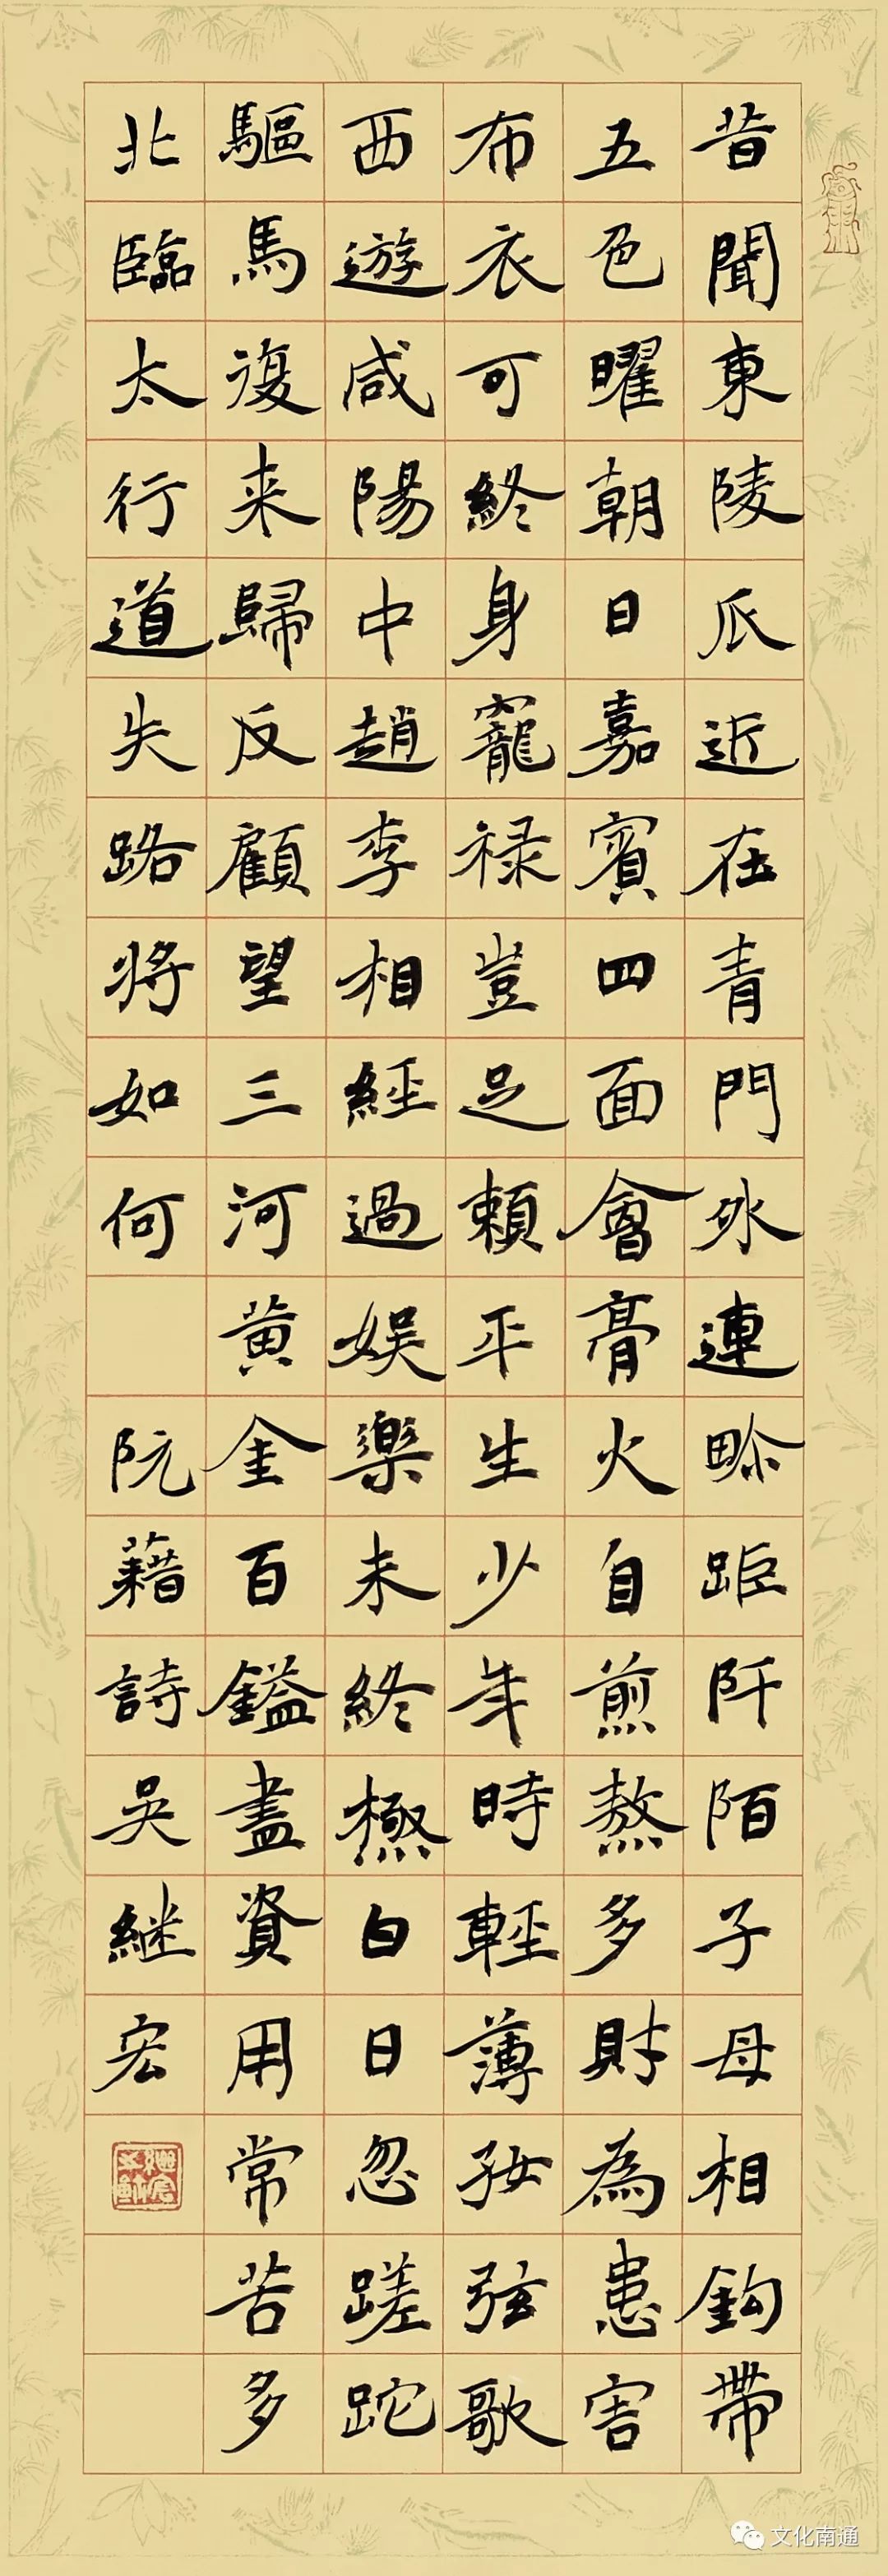 昔聞東陵瓜近在青門外連畛距阡陌子母相鈎帶
五色曜朝日嘉賓四面會膏火自煎熬多財為患害
布衣可終身寵禄豈足賴平生少年時輕薄好弦歌
西遊咸陽中趙李相經過娱樂未終極白日忽蹉跎
驅馬復来歸反顧望三河黄金百鎰盡資用常苦多
北臨太行道失路將如何
阮藉詩吴継宏
文化南通